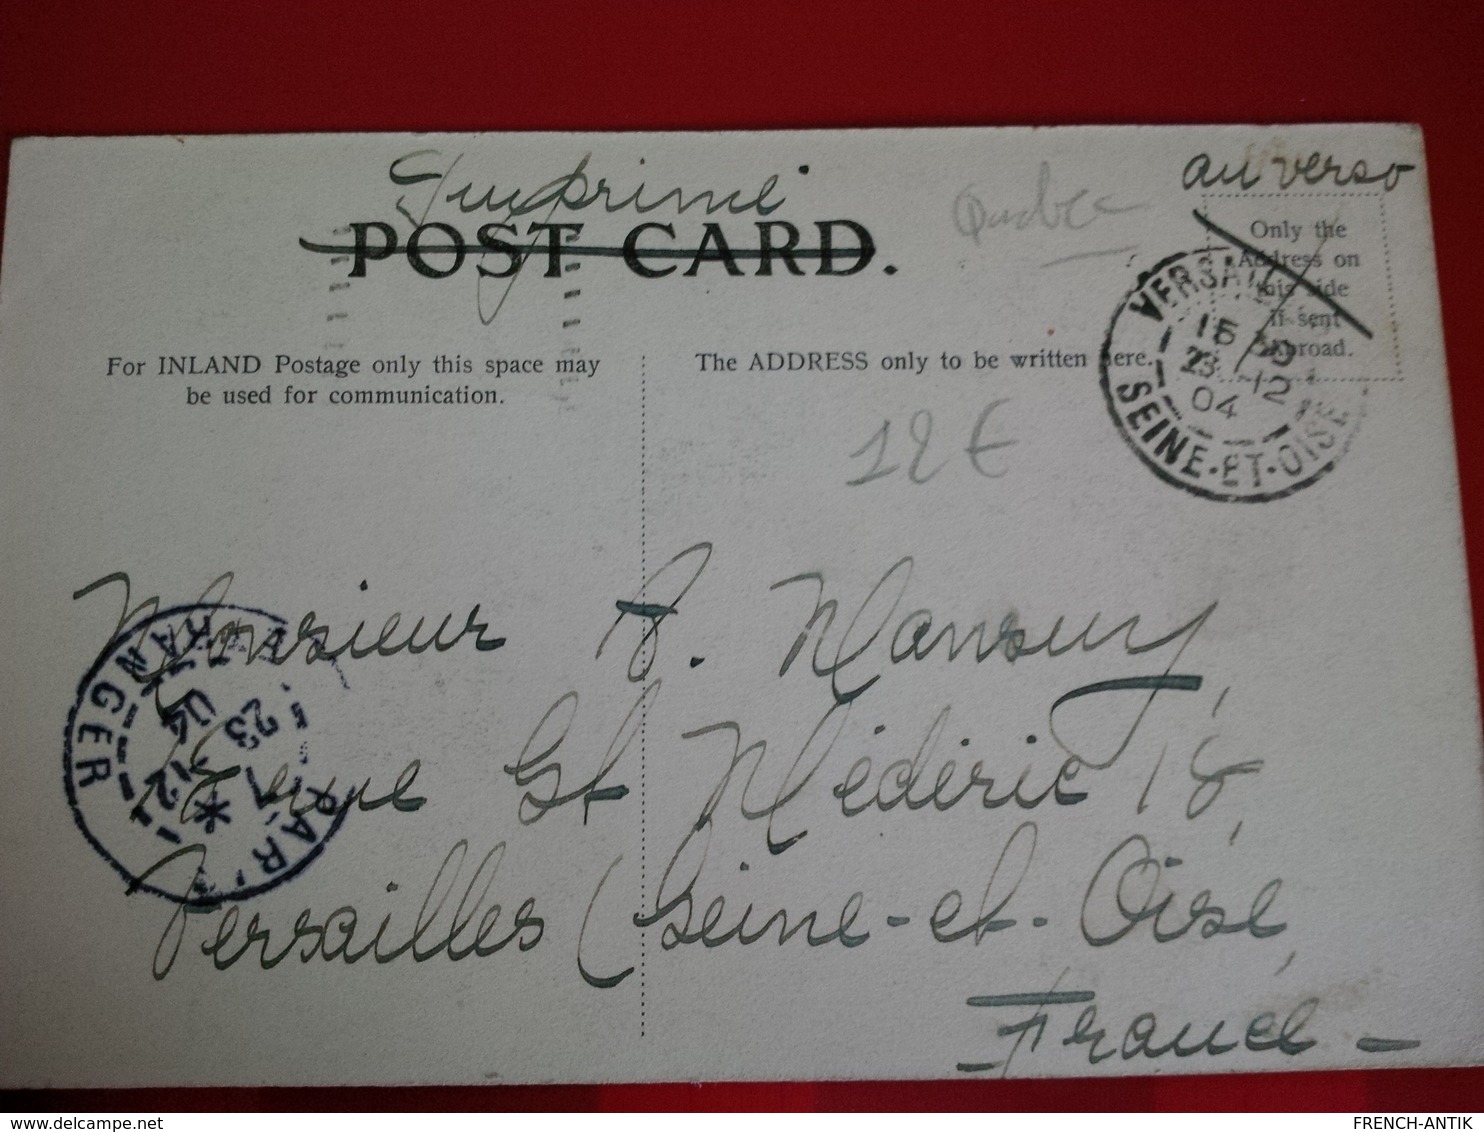 Imprimé
au verso
Quebec
POST CARD.
Only the
Address on
this side
if sent
abroad.
For INLAND Postage only this space may
be used for communication.
The ADDRESS only to be written here.
VERSAILLES
15
23 12
04
SEINE-ET-OISE
12 €
Monsieur A. Mansuy,
Rue St Médéric 18,
Versailles (Seine-et-Oise,
France -
PARIS
ETRANGER
23
12
04
FRENCH-ANTIK